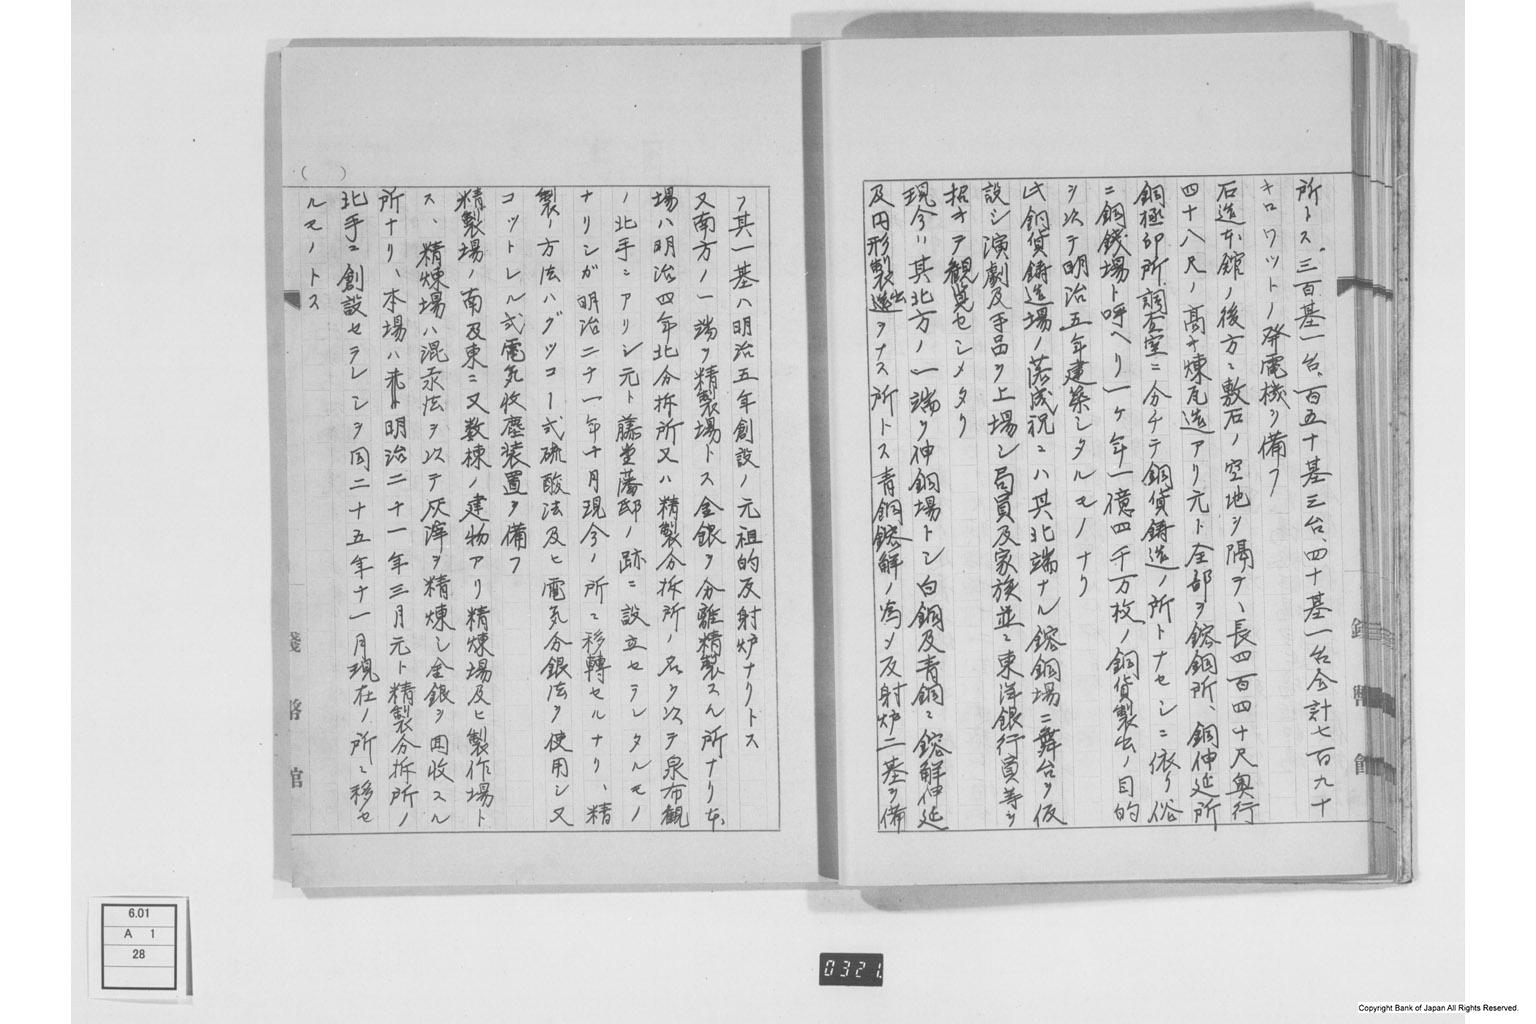 所トス、三百基一台、百五十基三台、四十基一台合計七百九十
キロワットノ発電機ヲ備フ
石造本館ノ後方ニ敷石ノ空地ヲ隔テ、長四百四十尺奥行
四十八尺ノ高キ煉瓦造アリ元ト全部ヲ鎔銅所、銅伸延所
銅極印所、調査室ニ分チテ銅貨鋳造ノ所トナセシニ依リ俗
ニ銅銭場ト呼ヘリ一ケ年一億四千万枚ノ銅貨製出ノ目的
ヲ以テ明治五年建築シタルモノナリ
此銅貨鋳造場ノ落成祝ニハ其北端ナル鎔銅場ニ舞台ヲ仮
設シ演劇及手品ヲ上場シ局員及家族並ニ東洋銀行員等ヲ
招キテ観覧セシメタリ
現今ハ其北方ノ一端ヲ伸銅場トシ白銅及青銅ニ鎔解伸延
及円形製造ヲナス所トス青銅鎔解ノ為メ反射炉二基ヲ備
フ其一基ハ明治五年創設ノ元祖的反射炉ナリトス
又南方ノ一端ヲ精製場トス金銀ヲ分離精製スル所ナリ本
場ハ明治四年北分析所又ハ精製分析所ノ名ヲ以テ泉布観
ノ北手ニアリシ元ト藤堂藩邸ノ跡ニ設立セラレタルモノ
ナリシガ明治二十一年十月現今ノ所ニ移轉セルナリ、精
製ノ方法ハグツコー式硫酸法及ヒ電気分銀法ヲ使用シ又
コットレル式電気收塵装置ヲ備フ
精製場ノ南及東ニ又数棟ノ建物アリ精煉場及ヒ製作場ト
ス、精煉場ハ混汞法ヲ以テ灰滓ヲ精煉シ金銀ヲ囬收スル
所ナリ、本場ハ元ト明治二十一年三月元ト精製分析所ノ
北手ニ創設セラレシヲ同二十五年十一月現在ノ所ニ移セ
ルモノトス
( )
銭幣館
6.01
A 1
28
0321
Copyright Bank of Japan All Rights Reserved.